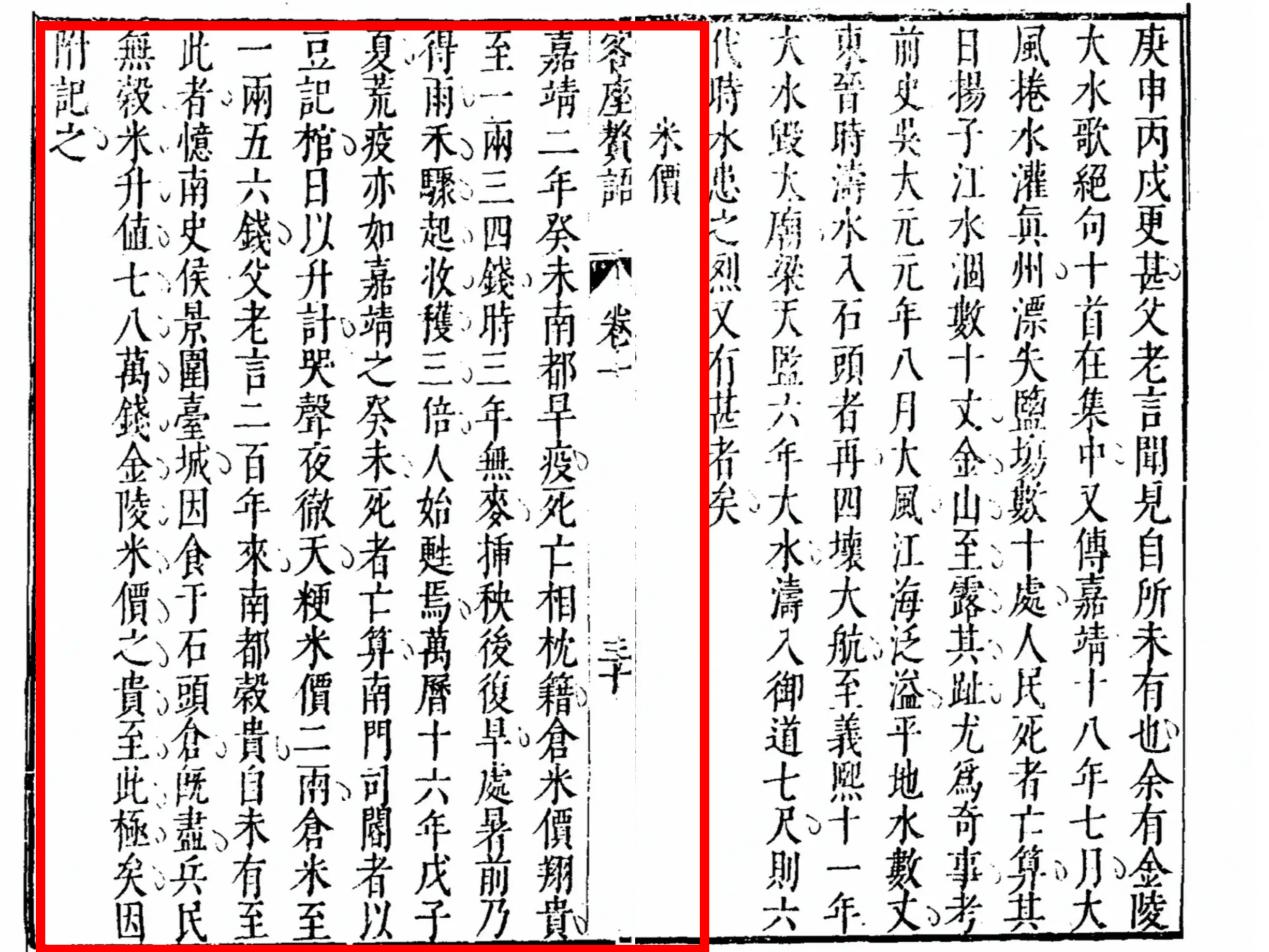 庚申丙戍更甚父老言聞見自所未有也余有金陵
大水歌絕句十首在集中又傳嘉靖十八年七月大
風捲水灌眞州漂失鹽場數十處人民死者亡算其
日揚子江水涸數十丈金山至露其趾尤爲奇事考
前史吳大元元年八月大風江海泛溢平地水數丈
東晉時濤水入石頭者再四壞大航至義熙十一年
大水毀大廟梁天監六年大水濤入御道七尺則六
代時水患之烈又有甚者矣
米價
客座贅語
卷一
三十
嘉靖二年癸未南都旱疫死亡相枕籍倉米價翔貴
至一兩三四錢時三年無麥挿秧後復旱處暑前乃
得雨禾驟起收穫三倍人始甦焉萬曆十六年戊子
夏荒疫亦如嘉靖之癸未死者亡算南門司閽者以
豆記棺日以升計哭聲夜徹天粳米價二兩倉米至
一兩五六錢父老言二百年來南都穀貴自未有至
此者憶南史侯景圍臺城因食于石頭倉既盡兵民
無穀米升値七八萬錢金陵米價之貴至此極矣因
附記之